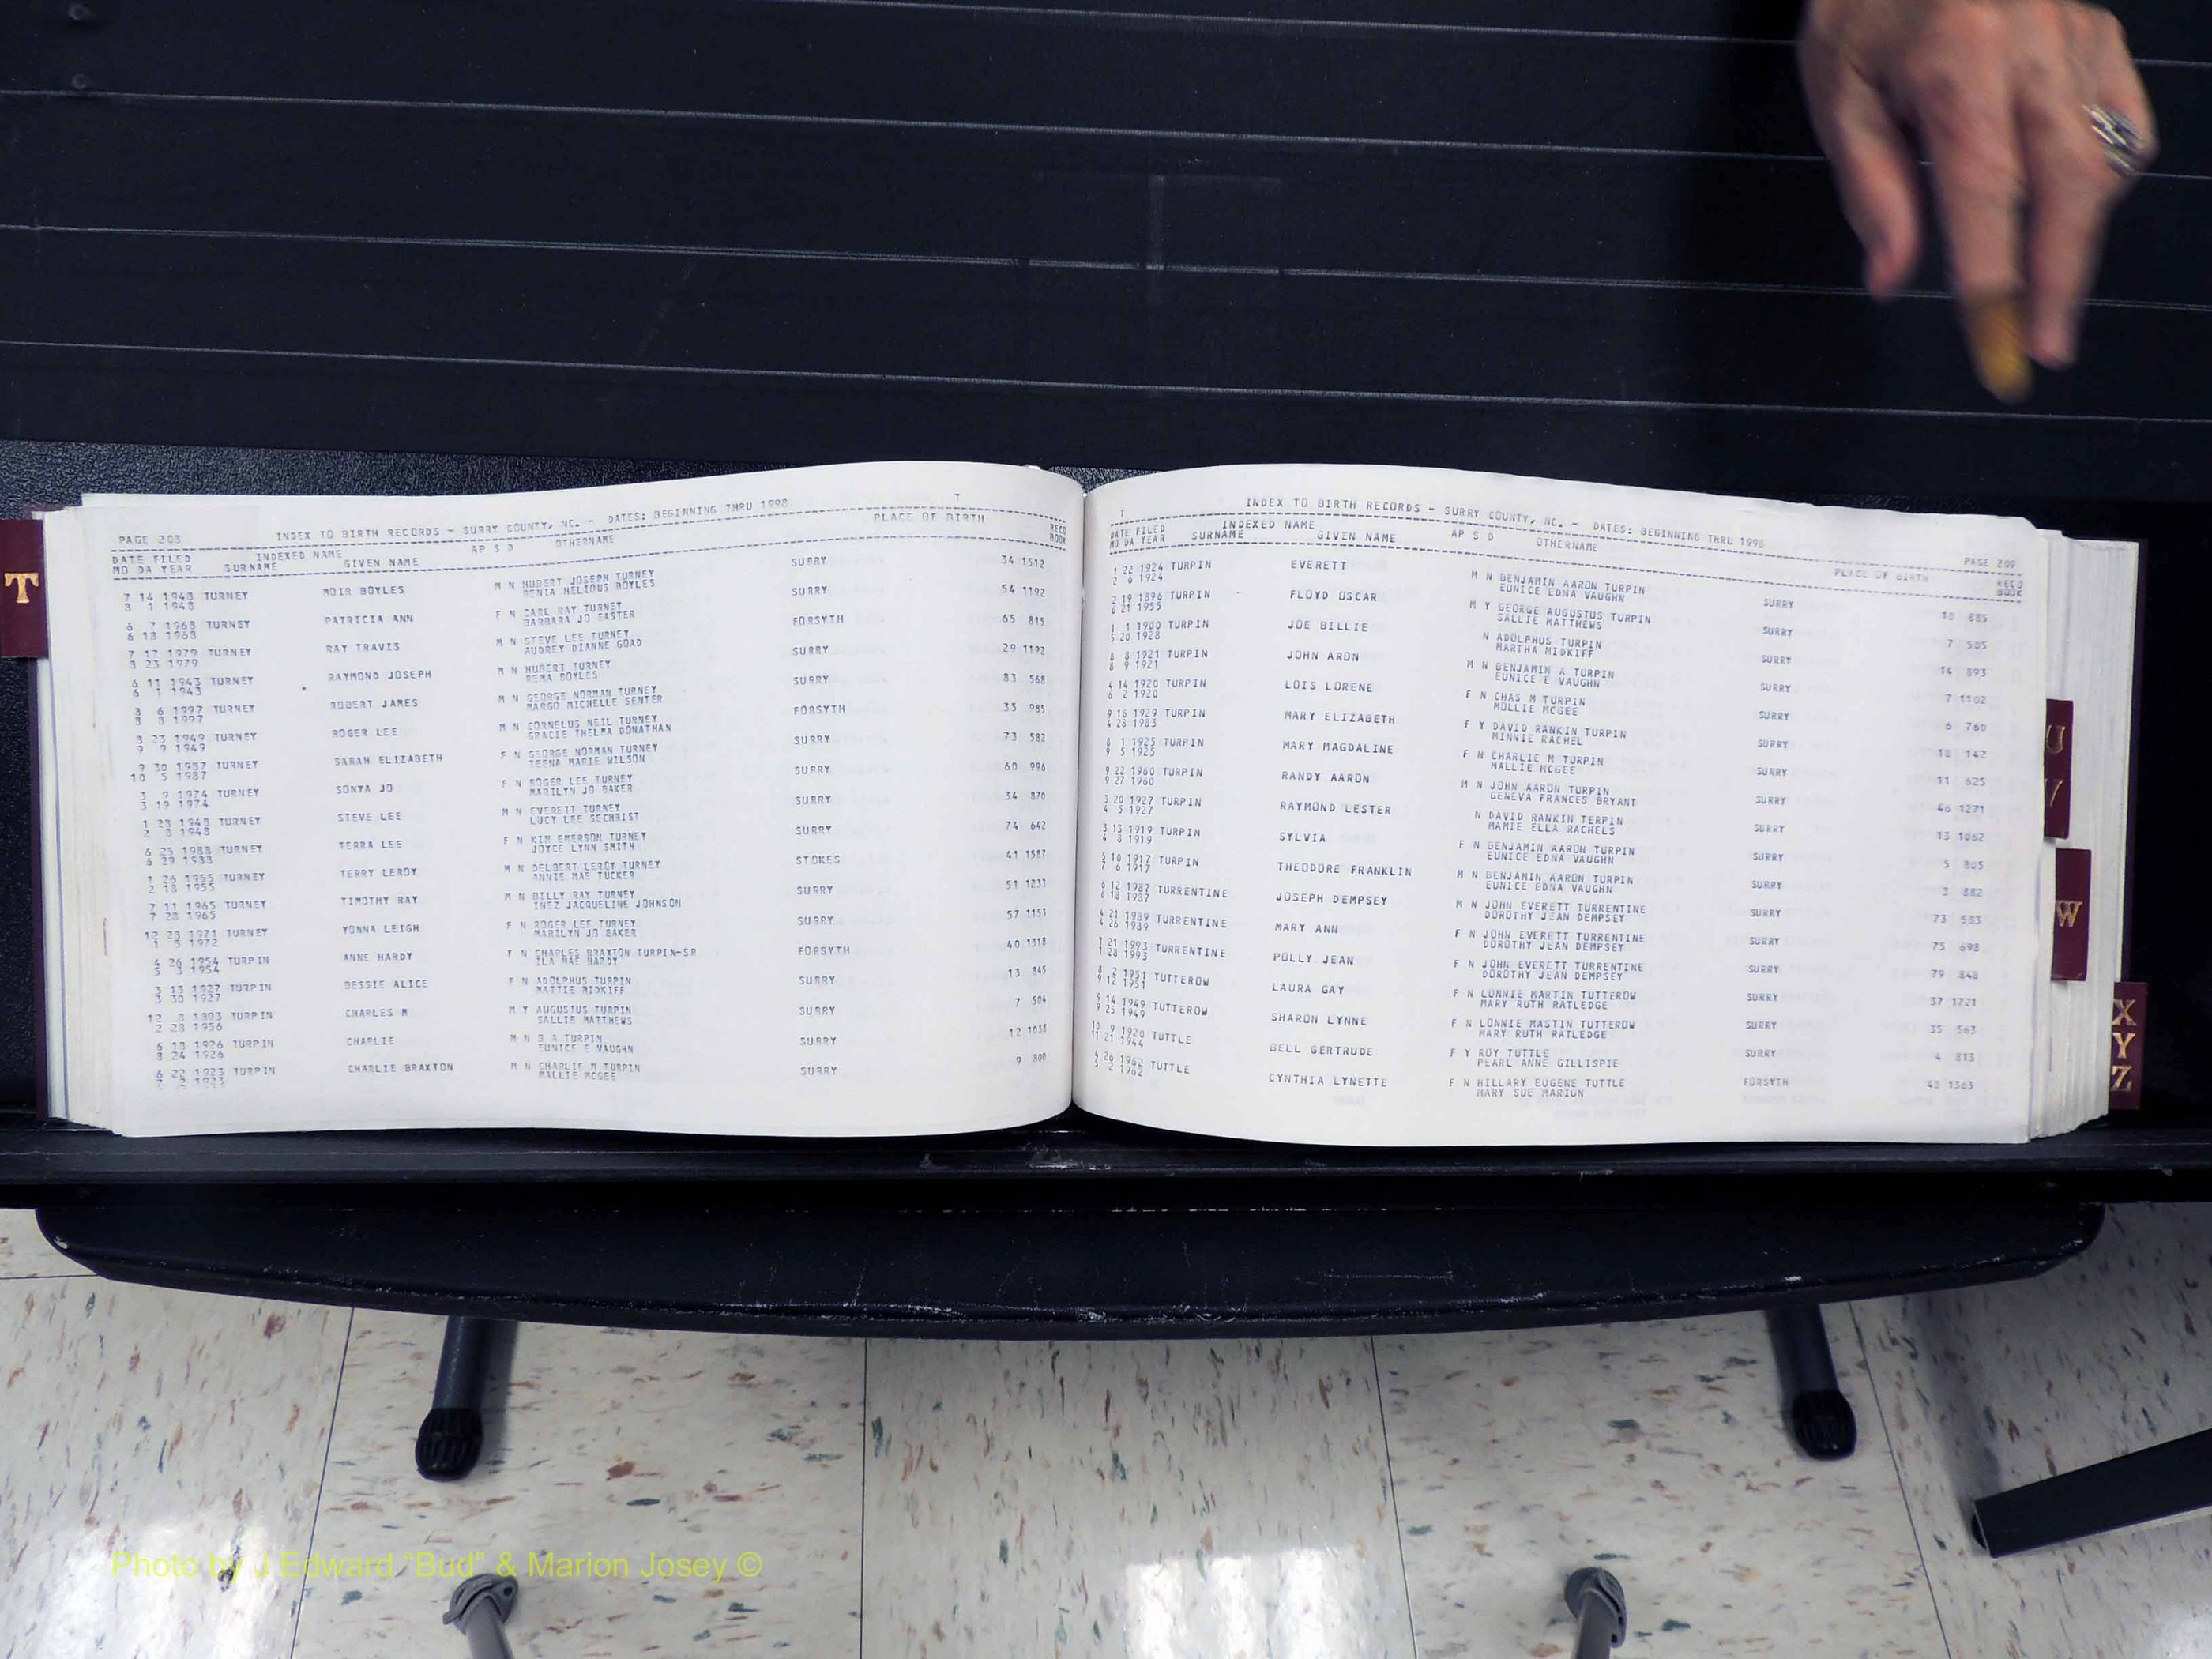 T
PAGE 208 INDEX TO BIRTH RECORDS - SURRY COUNTY, NC. - DATES: BEGINNING THRU 1998 T
DATE FILED INDEXED NAME AP S D OTHERNAME PLACE OF BIRTH RECO
MO DA YEAR SURNAME GIVEN NAME BOOK
7 14 1948 TURNEY MOIR BOYLES M N HUBERT JOSEPH TURNEY SURRY 34 1512
8 1 1948 RENIA HELIOUS BOYLES
6 7 1968 TURNEY PATRICIA ANN F N CARL RAY TURNEY SURRY 54 1192
6 18 1968 BARBARA JO EASTER
7 17 1979 TURNEY RAY TRAVIS M N STEVE LEE TURNEY FORSYTH 65 815
8 23 1979 AUDREY DIANNE GOAD
6 11 1943 TURNEY RAYMOND JOSEPH M N HUBERT TURNEY SURRY 29 1192
6 1 1943 REMA BOYLES
8 6 1997 TURNEY ROBERT JAMES M N GEORGE NORMAN TURNEY SURRY 83 568
8 8 1997 MARGO MICHELLE SENTER
8 23 1949 TURNEY ROGER LEE M N CORNELUS NEIL TURNEY FORSYTH 35 985
9 9 1949 GRACIE THELMA DONATHAN
9 30 1987 TURNEY SARAH ELIZABETH F N GEORGE NORMAN TURNEY SURRY 73 582
10 5 1987 TEENA MARIE WILSON
3 9 1974 TURNEY SONYA JO F N ROGER LEE TURNEY SURRY 60 996
3 19 1974 MARILYN JO BAKER
1 23 1948 TURNEY STEVE LEE M N EVERETT TURNEY SURRY 34 870
2 8 1948 LUCY LEE SECHRIST
6 25 1988 TURNEY TERRA LEE F N KIM EMERSON TURNEY SURRY 74 642
6 29 1988 JOYCE LYNN SMITH
1 26 1955 TURNEY TERRY LEROY M N DELBERT LEROY TURNEY STOKES 41 1587
2 18 1955 ANNIE MAE TUCKER
7 11 1965 TURNEY TIMOTHY RAY M N BILLY RAY TURNEY SURRY 51 1233
7 28 1965 INEZ JACQUELINE JOHNSON
12 23 1971 TURNEY YONNA LEIGH F N ROGER LEE TURNEY SURRY 57 1153
1 5 1972 MARILYN JO BAKER
4 26 1954 TURPIN ANNE HARDY F N CHARLES BRAXTON TURPIN-SR FORSYTH 40 1318
5 3 1954 ILA MAE HARDY
3 13 1927 TURPIN BESSIE ALICE F N ADOLPHUS TURPIN SURRY 13 845
3 30 1927 MATTIE MIDKIFF
12 8 1893 TURPIN CHARLES M M Y AUGUSTUS TURPIN SURRY 7 504
2 28 1956 SALLIE MATTHEWS
6 18 1926 TURPIN CHARLIE M N B A TURPIN SURRY 12 1038
8 24 1926 EUNICE E VAUGHN
6 22 1923 TURPIN CHARLIE BRAXTON M N CHARLIE M TURPIN SURRY 9 800
7 2 1923 MALLIE MCGEE
T INDEX TO BIRTH RECORDS - SURRY COUNTY, NC. - DATES: BEGINNING THRU 1998 PAGE 209
DATE FILED INDEXED NAME AP S D OTHERNAME PLACE OF BIRTH RECO
MO DA YEAR SURNAME GIVEN NAME BOOK
1 22 1924 TURPIN EVERETT M N BENJAMIN AARON TURPIN SURRY 10 885
2 6 1924 EUNICE EDNA VAUGHN
2 19 1896 TURPIN FLOYD OSCAR M Y GEORGE AUGUSTUS TURPIN SURRY 7 505
6 21 1955 SALLIE MATTHEWS
1 1 1900 TURPIN JOE BILLIE N ADOLPHUS TURPIN SURRY 14 893
5 20 1928 MARTHA MIDKIFF
8 8 1921 TURPIN JOHN ARON M N BENJAMIN A TURPIN SURRY 7 1102
8 9 1921 EUNICE E VAUGHN
4 14 1920 TURPIN LOIS LORENE F N CHAS M TURPIN SURRY 6 760
6 2 1920 MOLLIE MCGEE
9 16 1929 TURPIN MARY ELIZABETH F Y DAVID RANKIN TURPIN SURRY 18 142
4 28 1983 MINNIE RACHEL
8 1 1925 TURPIN MARY MAGDALINE F N CHARLIE M TURPIN SURRY 11 625
9 5 1925 MALLIE MCGEE
9 22 1960 TURPIN RANDY AARON M N JOHN AARON TURPIN SURRY 46 1271
9 27 1960 GENEVA FRANCES BRYANT
3 20 1927 TURPIN RAYMOND LESTER N DAVID RANKIN TERPIN SURRY 13 1062
4 5 1927 MAMIE ELLA RACHELS
3 13 1919 TURPIN SYLVIA F N BENJAMIN AARON TURPIN SURRY 5 805
4 8 1919 EUNICE EDNA VAUGHN
5 10 1917 TURPIN THEODORE FRANKLIN M N BENJAMIN AARON TURPIN SURRY 3 882
7 6 1917 EUNICE EDNA VAUGHN
6 12 1987 TURRENTINE JOSEPH DEMPSEY M N JOHN EVERETT TURRENTINE SURRY 73 583
6 18 1987 DOROTHY JEAN DEMPSEY
4 21 1989 TURRENTINE MARY ANN F N JOHN EVERETT TURRENTINE SURRY 75 698
4 26 1989 DOROTHY JEAN DEMPSEY
1 21 1993 TURRENTINE POLLY JEAN F N JOHN EVERETT TURRENTINE SURRY 79 848
1 28 1993 DOROTHY JEAN DEMPSEY
8 2 1951 TUTTEROW LAURA GAY F N LONNIE MARTIN TUTTEROW SURRY 37 1721
9 12 1951 MARY RUTH RATLEDGE
9 14 1949 TUTTEROW SHARON LYNNE F N LONNIE MASTIN TUTTEROW SURRY 35 563
9 25 1949 MARY RUTH RATLEDGE
10 9 1920 TUTTLE BELL GERTRUDE F Y ROY TUTTLE SURRY 4 813
11 21 1944 PEARL ANNE GILLISPIE
4 26 1962 TUTTLE CYNTHIA LYNETTE F N HILLARY EUGENE TUTTLE FORSYTH 48 1363
5 2 1962 MARY SUE MARION
U
V
W
X
Y
Z
Photo by J Edward "Bud" & Marion Josey ©